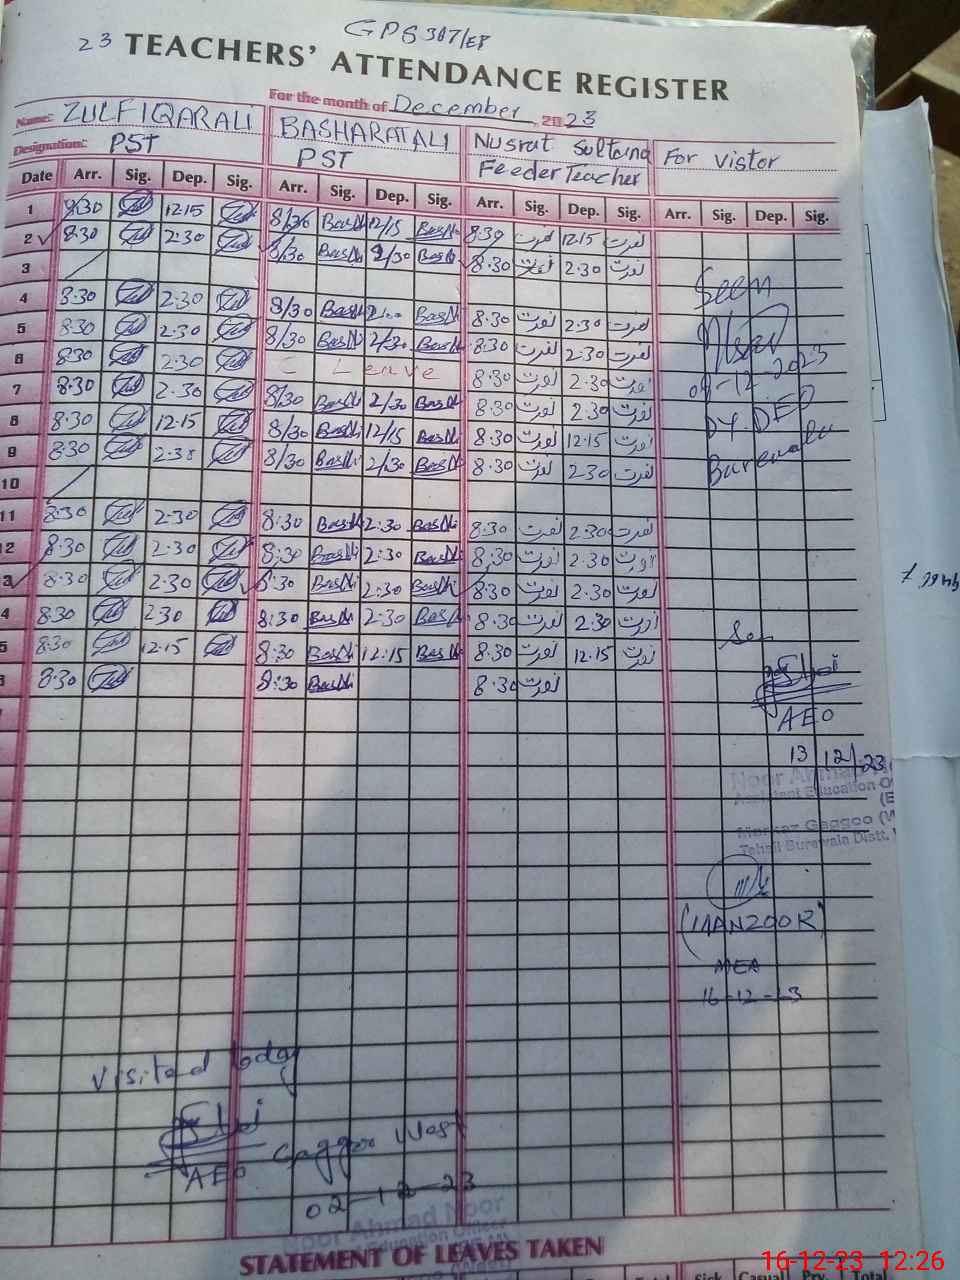 GPS 307/EB
23 TEACHERS' ATTENDANCE REGISTER
For the month of December 2023
Name: ZULFIQAR ALI BASHARAT ALI Nusrat Sultana For Vistor
Designation: PST PST Feeder Teacher
Date Arr. Sig. Dep. Sig. Arr. Sig. Dep. Sig. Arr. Sig. Dep. Sig. Arr. Sig. Dep. Sig.
1 8/30 12 15 8/30 12/15 8:30 نصرت 12 15 نصرت
2 8.30 2.30 8/30 2/30 8.30 نصرت 2.30 نصرت
3
4 8.30 2.30 8/30 8.30 نصرت 2.30 نصرت
5 8.30 2.30 8/30 2/30 8.30 نصرت 2.30 نصرت
6 8.30 2.30 C Leave 8.30 نصرت 2.30 نصرت
7 8.30 2.30 8/30 2/30 8.30 نصرت 2.30 نصرت
8 8.30 12.15 8/30 12/15 8.30 نصرت 12.15 نصرت
9 8.30 2.30 8/30 2/30 8.30 نصرت 2.30 نصرت
10
11 8.30 2.30 8:30 2:30 8.30 نصرت 2.30 نصرت
12 8.30 2.30 8:30 2:30 8.30 نصرت 2.30 نصرت
3 8.30 2.30 8:30 2:30 8.30 نصرت 2.30 نصرت
4 8.30 2.30 8:30 2:30 8.30 نصرت 2.30 نصرت
5 8.30 12.15 8:30 12:15 8.30 نصرت 12.15 نصرت
8.30 8:30 8.30 نصرت
Seen
09-12-2023
DY. DEO
Burewala
AEO
13/12/23
Noor Ahmad
Assistant Education
Markaz Gaggoo
Tehsil Burewala Distt.
(MANZOOR)
MEA
16-12-23
Visited today
AEO Gaggoo West
02-12-23
Noor Ahmad Noor
Education Officer
STATEMENT OF LEAVES TAKEN
Total Sick Casual Total
16-12-23 12:26